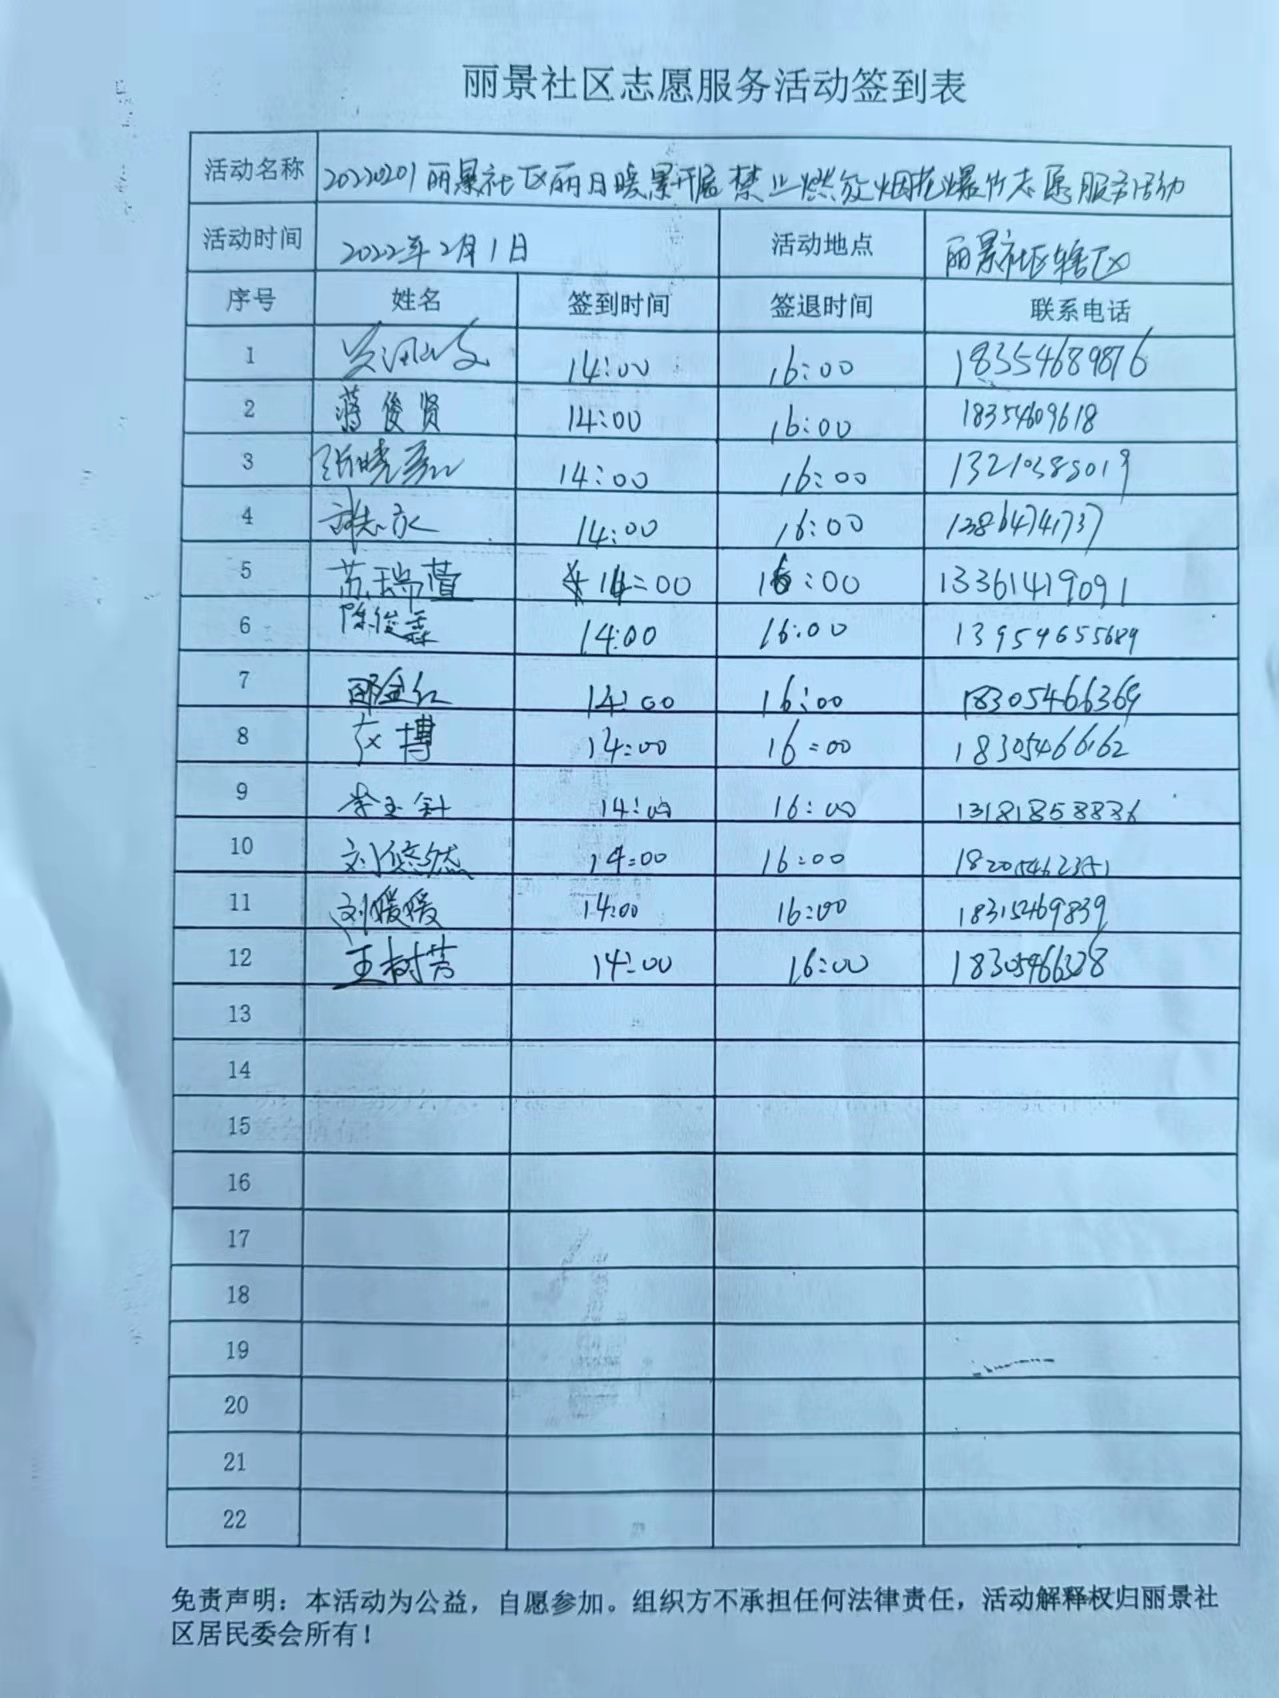 丽景社区志愿服务活动签到表
活动名称 20220201丽景社区丽日暖景开展禁止燃放烟花爆竹志愿服务活动
活动时间 2022年2月1日 活动地点 丽景社区辖区
序号 姓名 签到时间 签退时间 联系电话
1 14:00 16:00 18354689876
2 蒋俊贤 14:00 16:00 18354609618
3 14:00 16:00 13210385019
4 14:00 16:00 13864741737
5 苏瑞萱 14:00 16:00 13361419091
6 陈俊霖 14:00 16:00 13954655689
7 14:00 16:00 18305466369
8 14:00 16:00 18305466162
9 14:00 16:00 13181858886
10 刘悠然 14:00 16:00 18205462351
11 刘暖暖 14:00 16:00 18315469839
12 王树芳 14:00 16:00 18305466328
13
14
15
16
17
18
19
20
21
22
免责声明：本活动为公益，自愿参加。组织方不承担任何法律责任，活动解释权归丽景社
区居民委会所有！